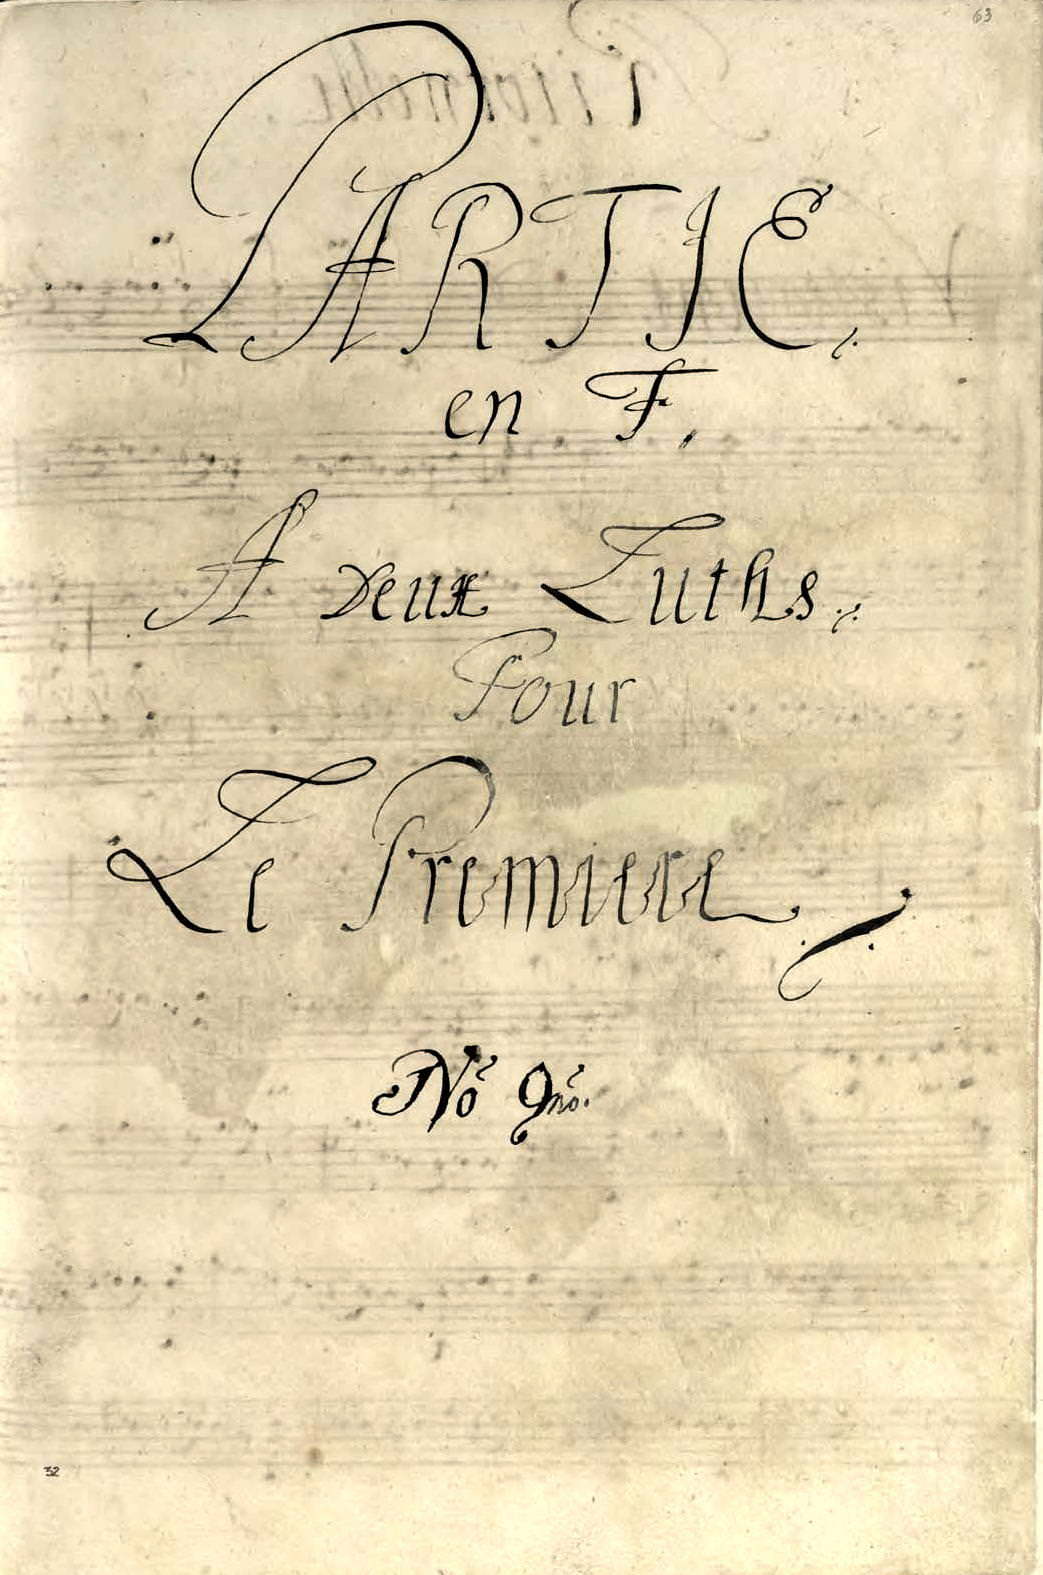 63
PARTIE.
en F.
A Deux Luths.
Pour
Le Premiere
No 9no.
32